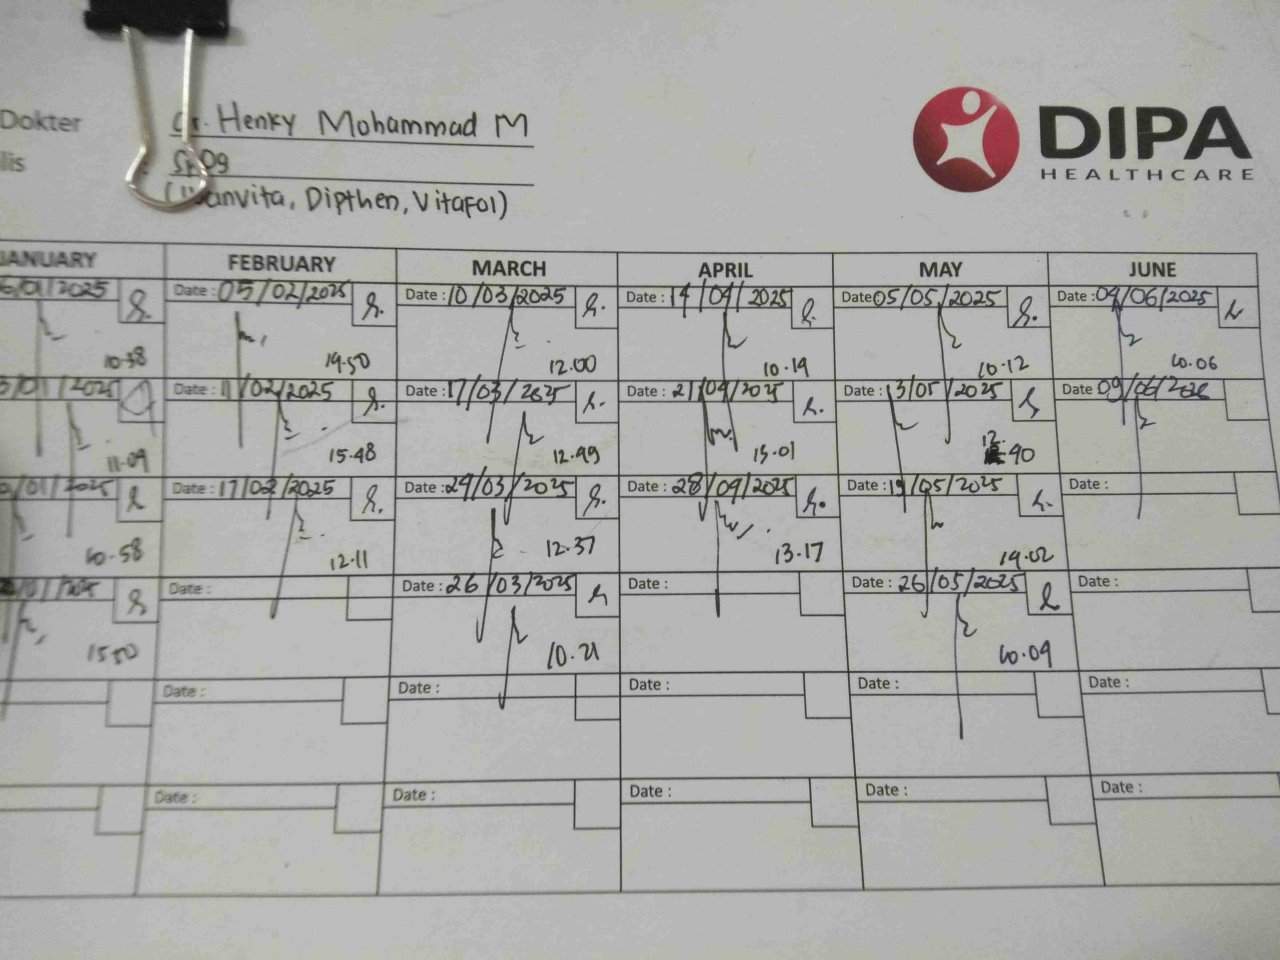 Dokter Dr. Henky Mohammad M
lis SpOg
Dipthen, Vitafol)
DIPA
HEALTHCARE
JANUARY FEBRUARY MARCH APRIL MAY JUNE
6/01/2025 Date : 05/02/2025 Date : 10/03/2025 Date : 14/04/2025 Date 05/05/2025 Date : 04/06/2025
10.38 14.50 12.00 10.14 10.12 10.06
3/01/2025 Date : 11/02/2025 Date : 17/03/2025 Date : 21/04/2025 Date : 13/05/2025 Date 09/06/2025
11.09 15.48 12.49 13.01 12.40
/01/2025 Date : 17/02/2025 Date : 24/03/2025 Date : 28/04/2025 Date : 19/05/2025 Date :
10.58 12.11 12.37 13.17 14.02
/01/2025 Date : Date : 26/03/2025 Date : Date : 26/05/2025 Date :
15.50 10.21 10.09
Date : Date : Date : Date : Date :
Date : Date : Date : Date : Date :